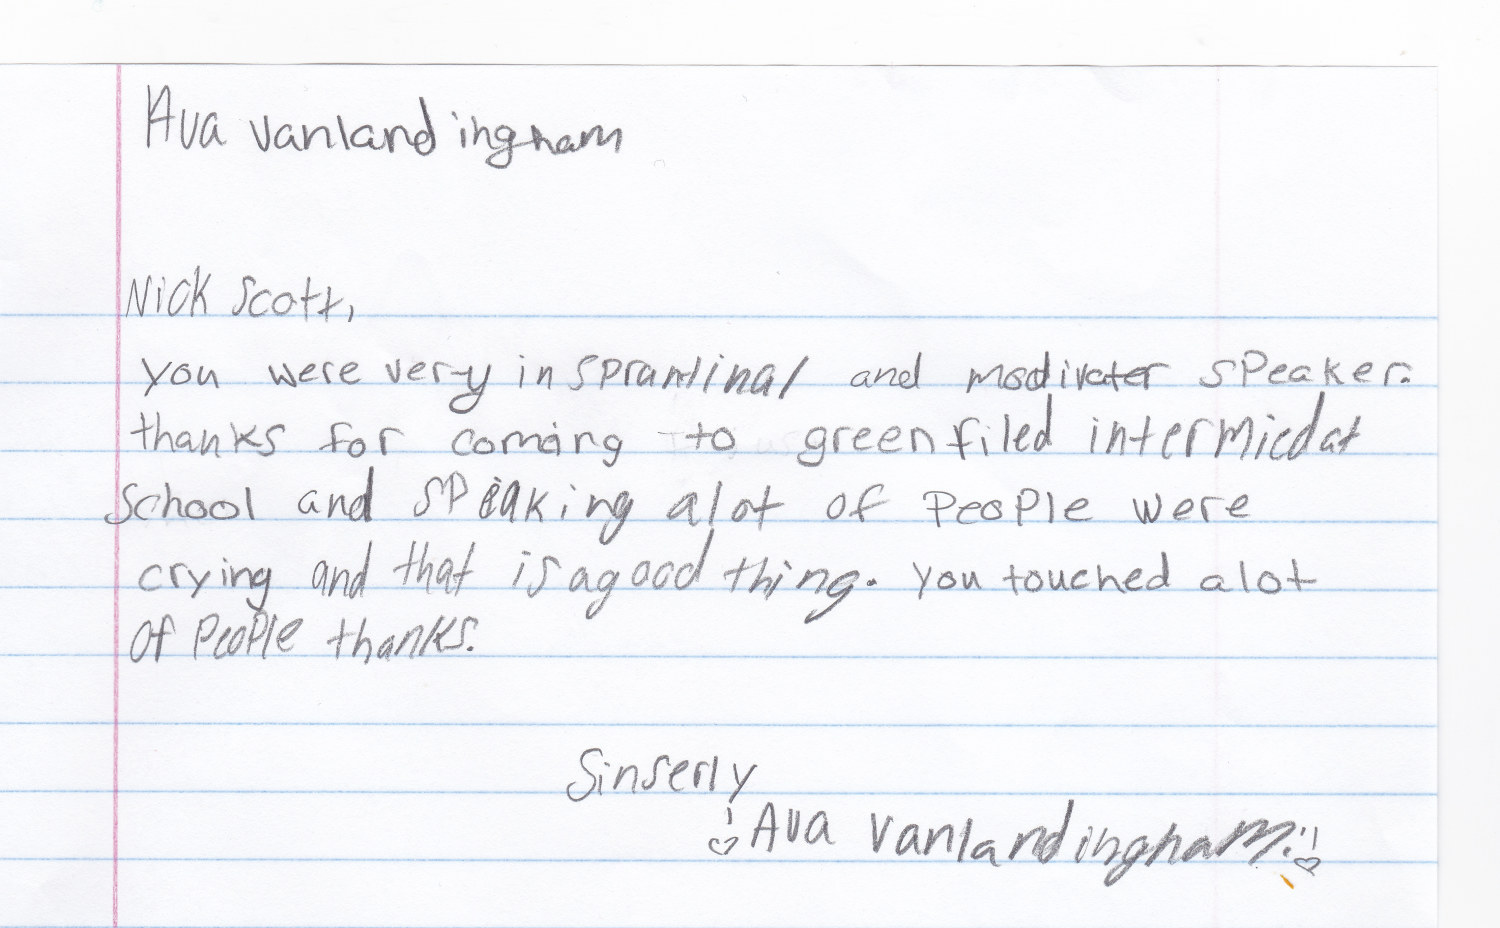 Ava vanlandingham
Nick Scott,
you were very inspramlinal and modivater speaker.
thanks for coming to greenfiled intermicdat
school and speaking alot of people were
crying and that is a good thing. you touched alot
of people thanks.
Sinserly
Ava vanlandingham